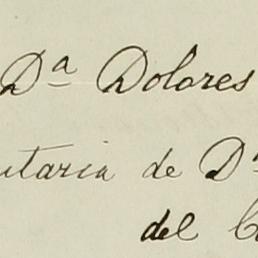 Dª Dolores
utaria de Dª
del